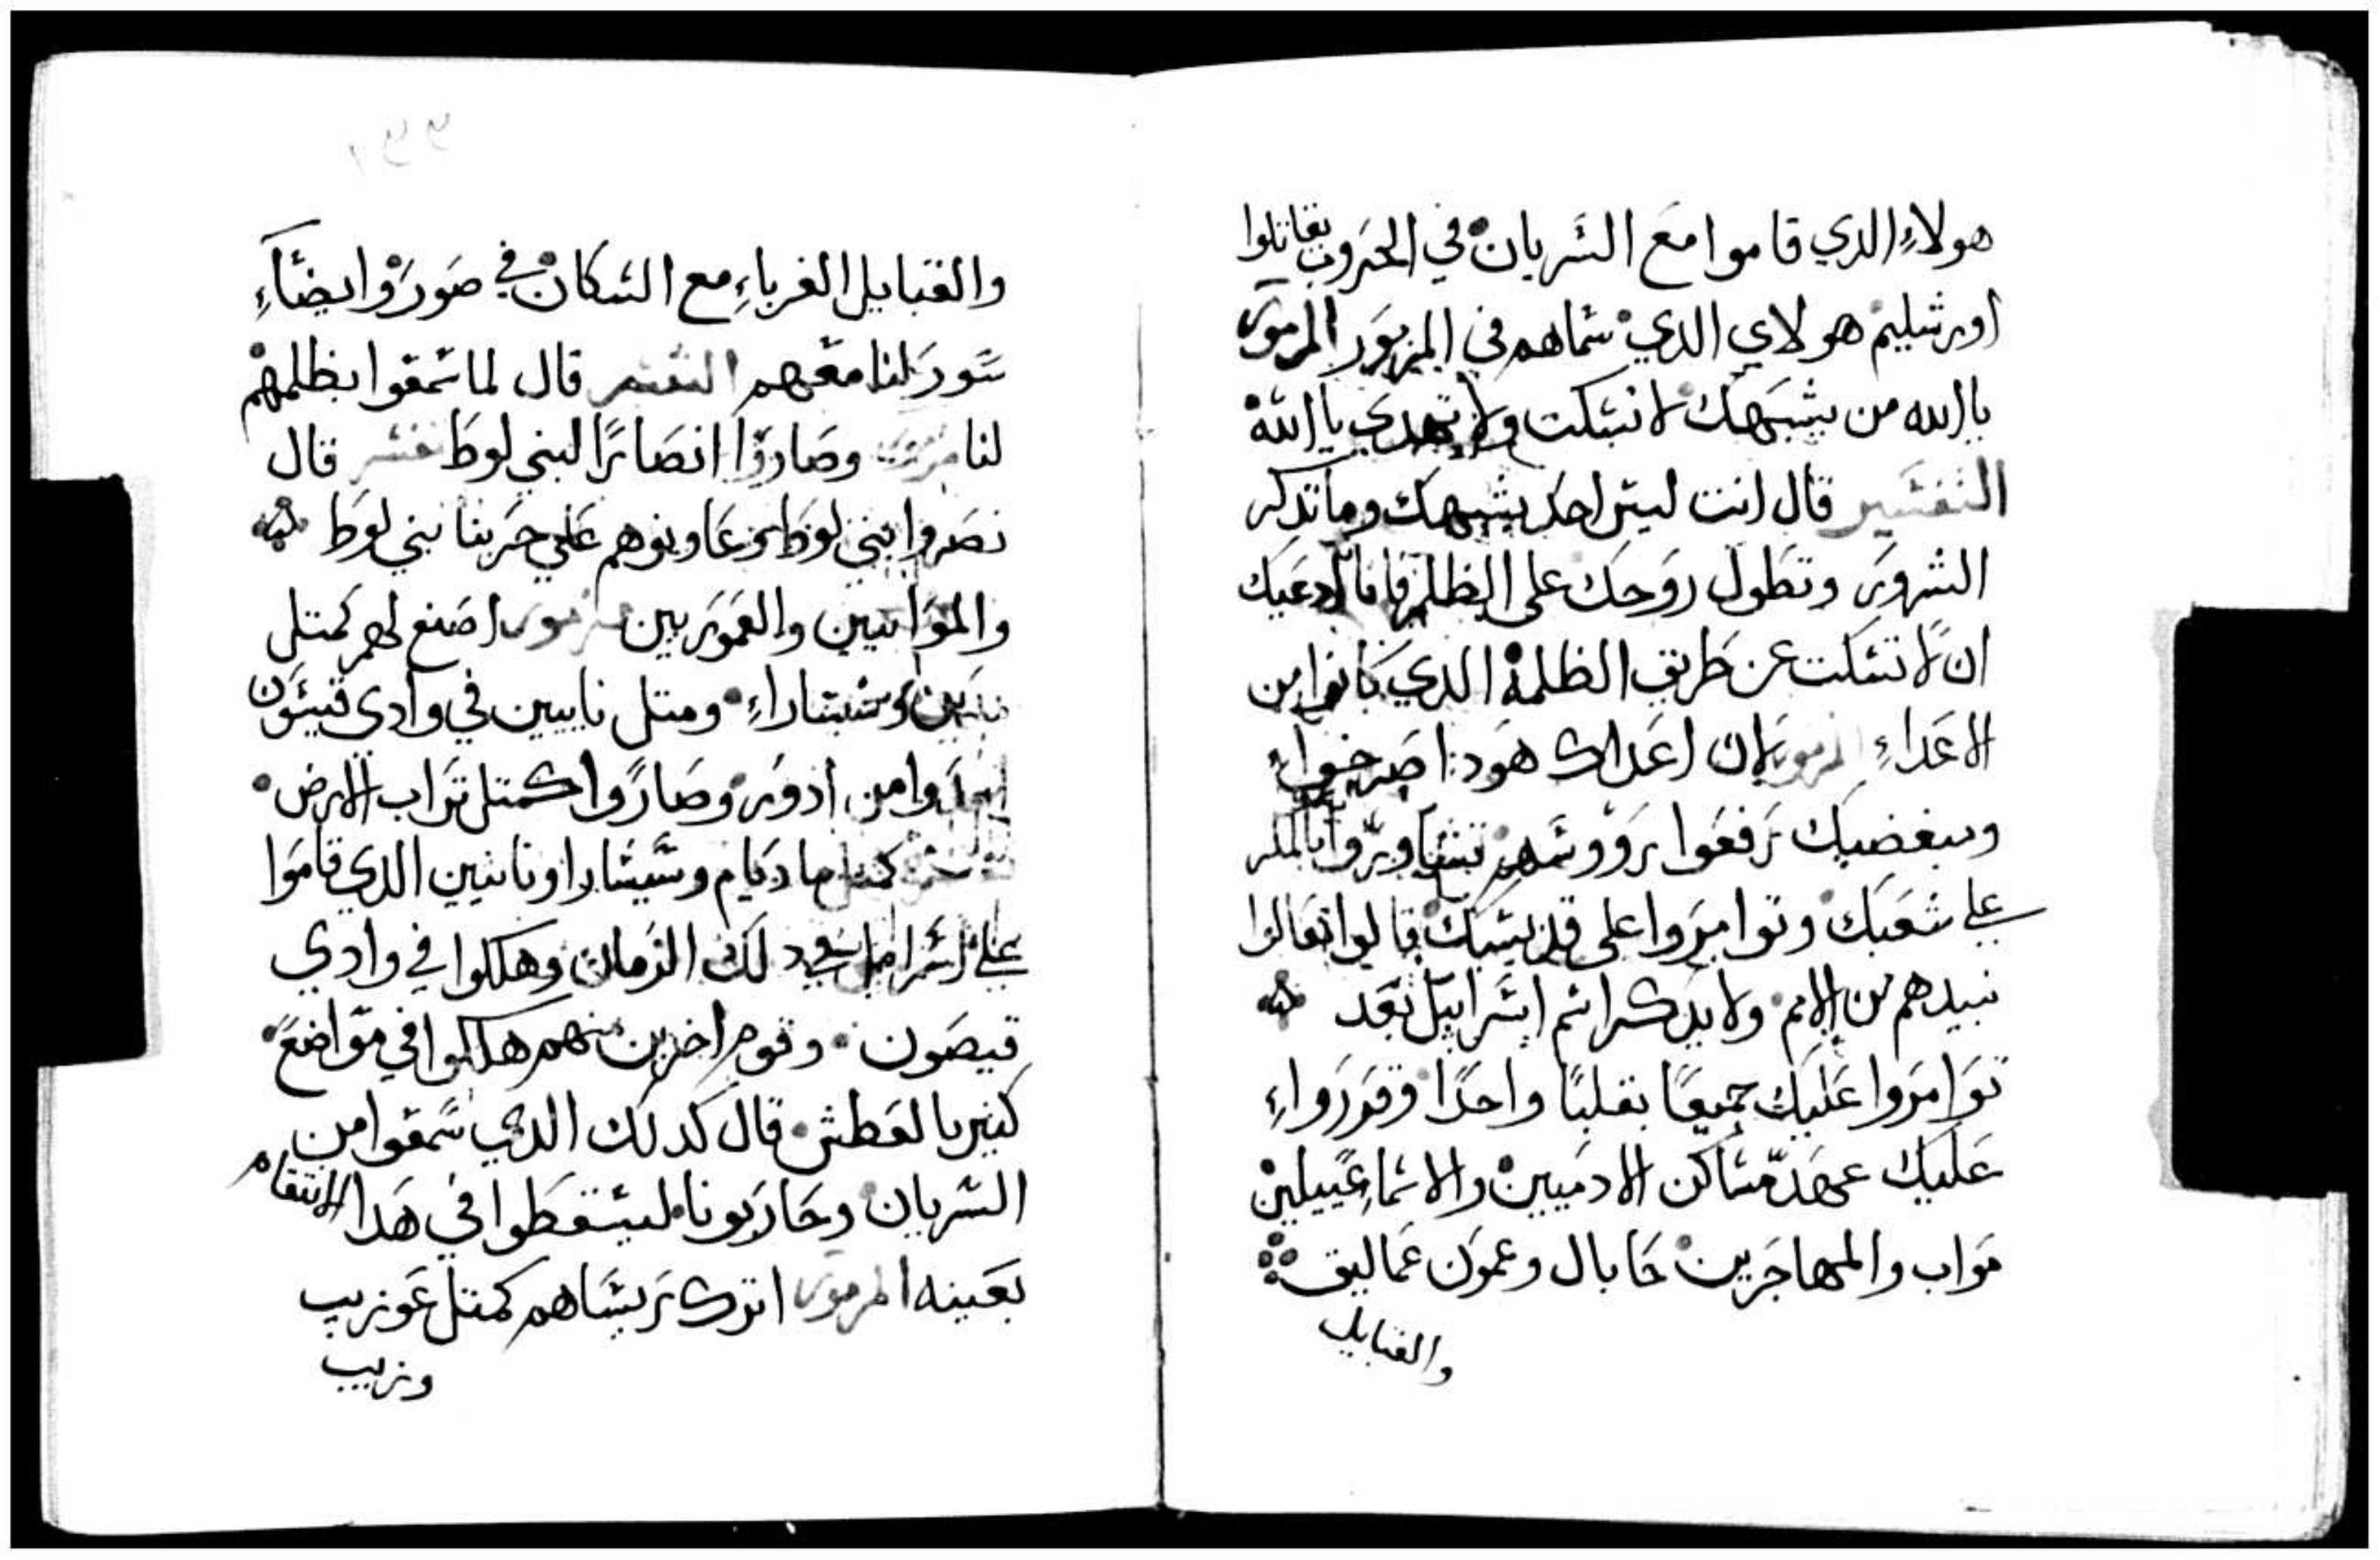 هولاءِ الدي قاموا مع السريان في الحروب يقاتلوا
اورشليم هولاي الدي سماهم في المزمور المزمور
يا الله من يشبهك لا تسكت ولا تهدي يا الله
التفسير قال انت ليس احد يشبهك وما تدكر
الشرور وتطول روحك على الظلم فانا ادعيك
ان لا تسكت عن طريق الظلمة الدي كانوا من
الاعداءِ المزمور لان اعداك هود اصرخوا
ومبغضيك رفعوا رووسهم تشاوروا بالمكر
علي شعبك وتوامروا على قديسيك قالوا تعالوا
نبيدهم من الامم ولا يدكر اسم اسراييل بعد
توامروا عليك جميعًا بقلبًا واحدًا وقرروا
عليك عهد مساكن الادميين والاسماعييلين
مواب والمهاجرين حابال وعمون عماليق
والقبايل
والقبايل الغرباءِ مع السكان في صور وايضًاءِ
سور لنا معهم التفسير قال لما سمعوا بظلمهم
لنا وصاروا انصارًا لبني لوط فسر قال
نصروا بني لوط وعاونوهم علي حربنا بني لوط
والموابيين والعمورين مزمور اصنع لهم كمتل
وسيساراءِ ومتل نابيين في وادي قيسون
من ادور وصاروا كمتل تراب الارض
كمتل ما ديام وسيسارا ونابيين الدي قاموا
علي اسراييل في دلك الزمان وهلكوا في وادي
قيصون وقوم اخرين منهم هلكوا في مواضع
كتير بالعطش قال كدلك الدي سمعوا من
السريان وحاربونا ليسقطوا في هدا الانتقام
بعينه المزمور اترك ريساهم كمتل عوزيب
وزيب